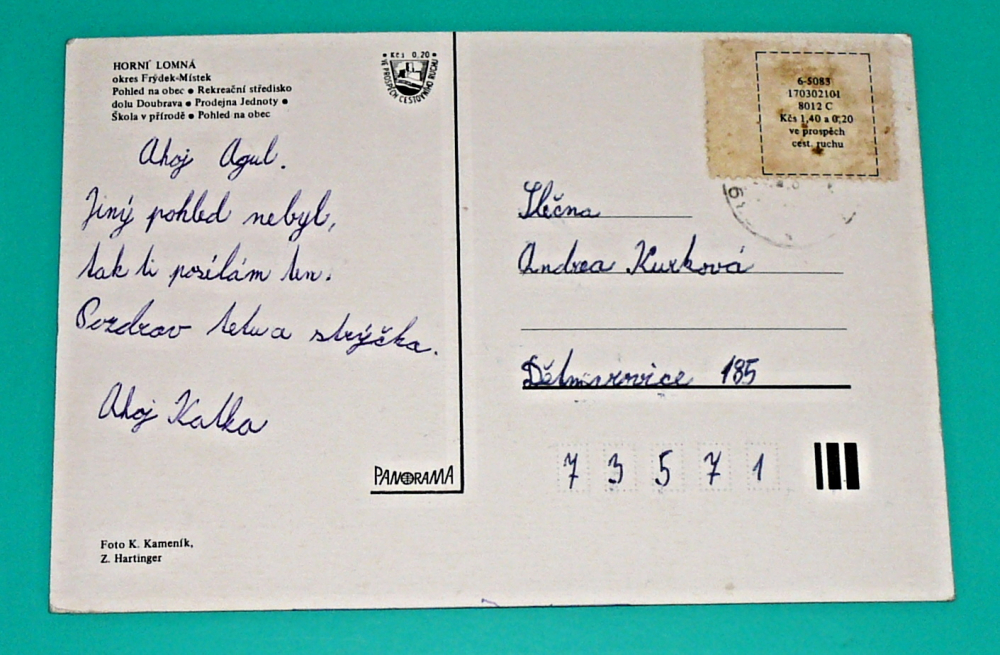 HORNÍ LOMNÁ
okres Frýdek-Místek
Pohled na obec • Rekreační středisko
dolu Doubrava • Prodejna Jednoty •
Škola v přírodě • Pohled na obec
• Kčs 0,20 •
VE PROSPĚCH CESTOVNÍHO RUCHU
Ahoj Agul.
Jiný pohled nebyl,
tak ti posílám ten.
Pozdrav tetu a strýčka.
Ahoj Katka
PANORAMA
Foto K. Kameník,
Z. Hartinger
6-5083
170302101
8012 C
Kčs 1,40 a 0,20
ve prospěch
cest. ruchu
Slečna
Andrea Kurková
Dětmarovice 185
73571